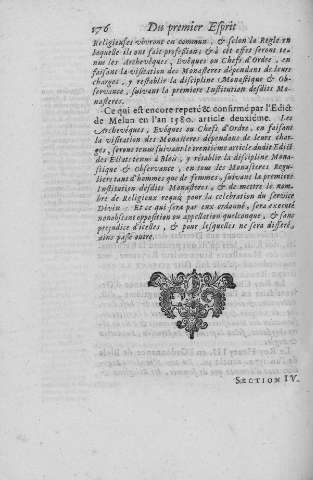 176 Du premier Esprit
Religieuses vivront en commun, & selon la Regle en
laquelle ils ont fait profession; & à cét effet seront te-
nus les Archevêques, Evêques ou Chefs d'Ordre, en
faisant la visitation des Monasteres dépendans de leurs
charges, y restablir la discipline Monastique & Ob-
servance, suivant la premiere Institution desdits Mo-
nasteres.
Ce qui est encore repeté & confirmé par l'Edict
de Melun en l'an 1580. article deuxiéme. Les
Archevêques, Evêques ou Chefs d'Ordre, en faisant
la visitation des Monasteres dépendans de leur char-
ges, seront tenus suivant le trentiéme article du dit Edict
des Estats tenus à Blois, y rétablir la discipline Mona-
stique & Observance, en tous des Monasteres Regu-
liers tant d'hommes que de femmes, suivant la premiere
Institution desdits Monasteres, & de mettre le nom-
bre de Religieux requis pour la celebration du service
Divin: Et ce qui sera par eux ordonné, sera executé
nonobstant opposition ou appellation quelconque, & sans
prejudice d'icelles, & pour lesquelles ne sera differé,
ains passé outre.
SECTION IV.